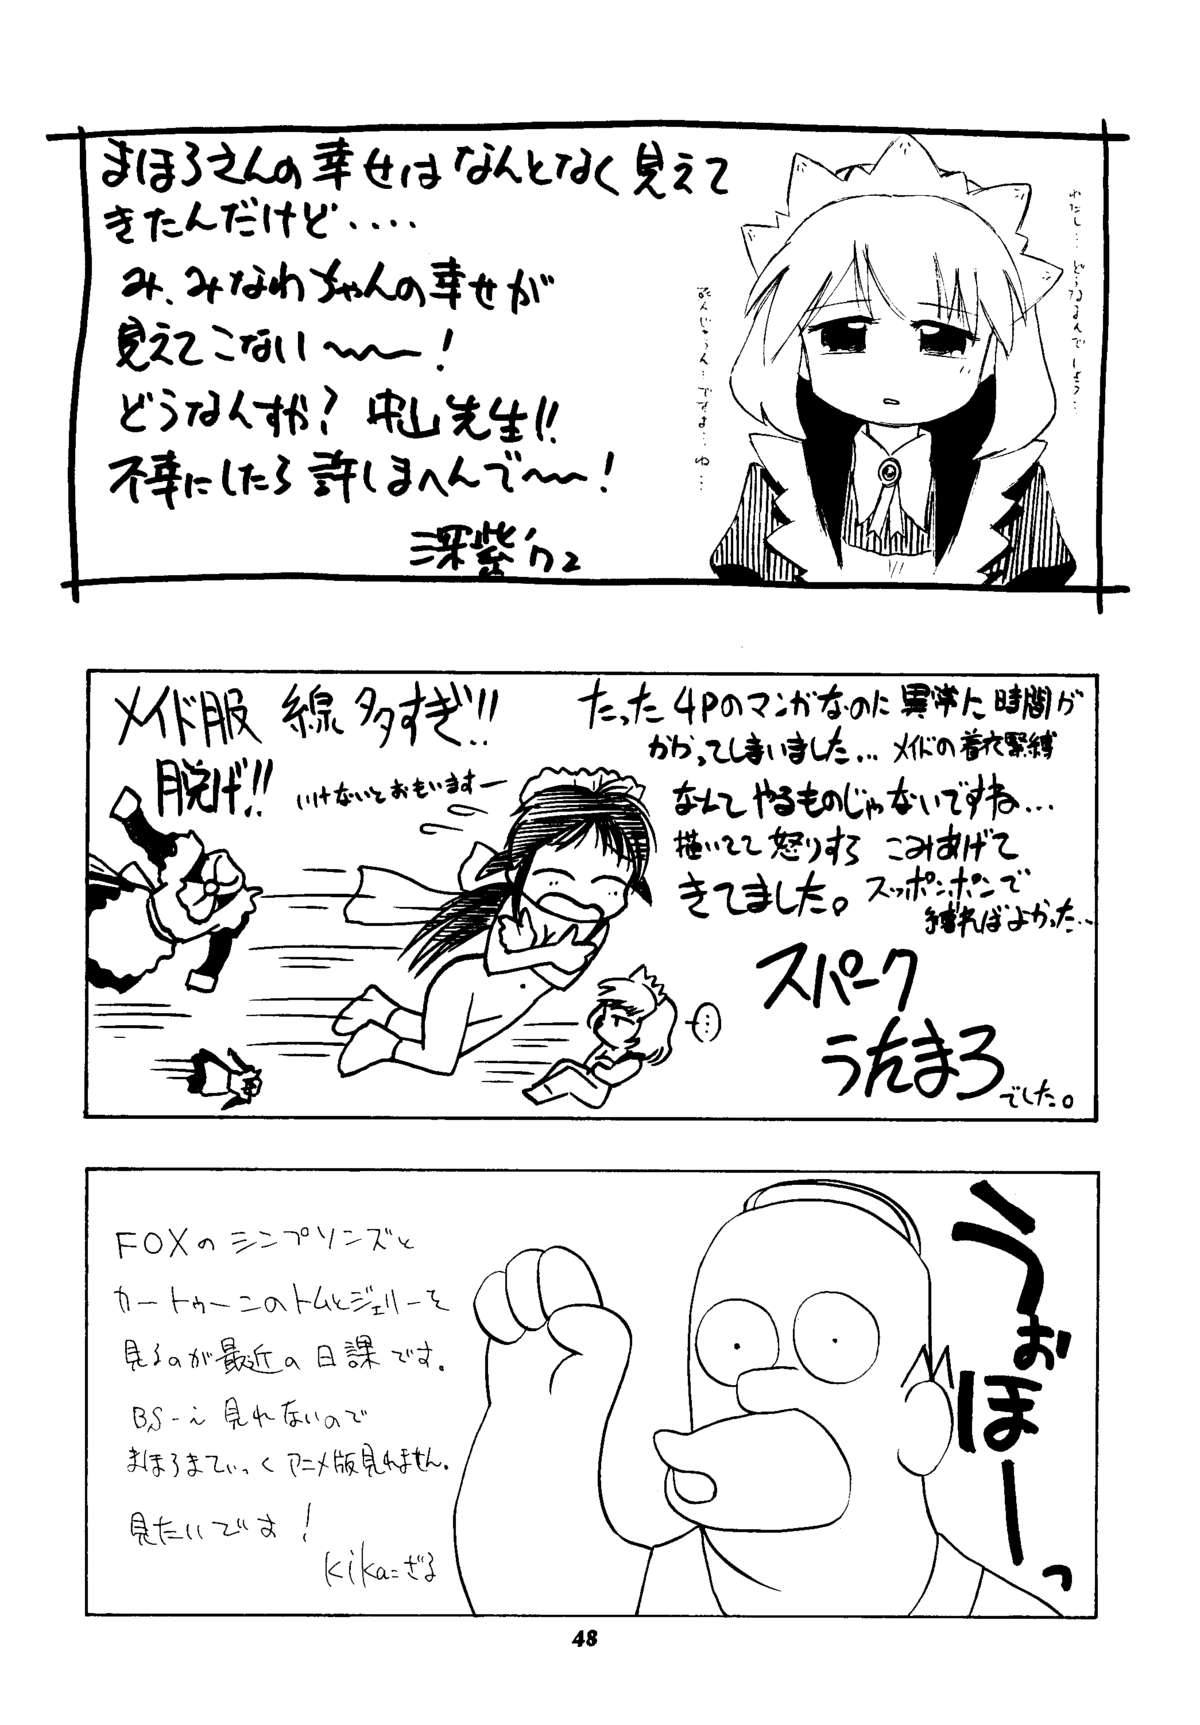 まほろさんの幸せは なんとなく見えて
きたんだけど・・・・
み、みなわちゃんの幸せが
見えてこない〜〜〜！
どうなんすか？ 中山先生!!
不幸にしたら許しまへんで〜〜！
わたし…どうなるんでしょう…
メイド服 線多すぎ!!
脱げ!!
いけないとおもいますー
たった4Pのマンガなのに異常に時間が
かかってしまいました… メイドの着衣緊縛
なんてやるものじゃないですね…
描いてて 怒りすら こみあげて
きてました。スッポンポンで
縛ればよかった…
…
スパーク
うたまろ
でした。
うぉほーっ
FOXのシンプソンズと
カートゥーンのトムとジェリーを
見るのが最近の日課です。
見れないので
まほろまてぃっく アニメ版見れません。
見たいです！
kika=ざる
48